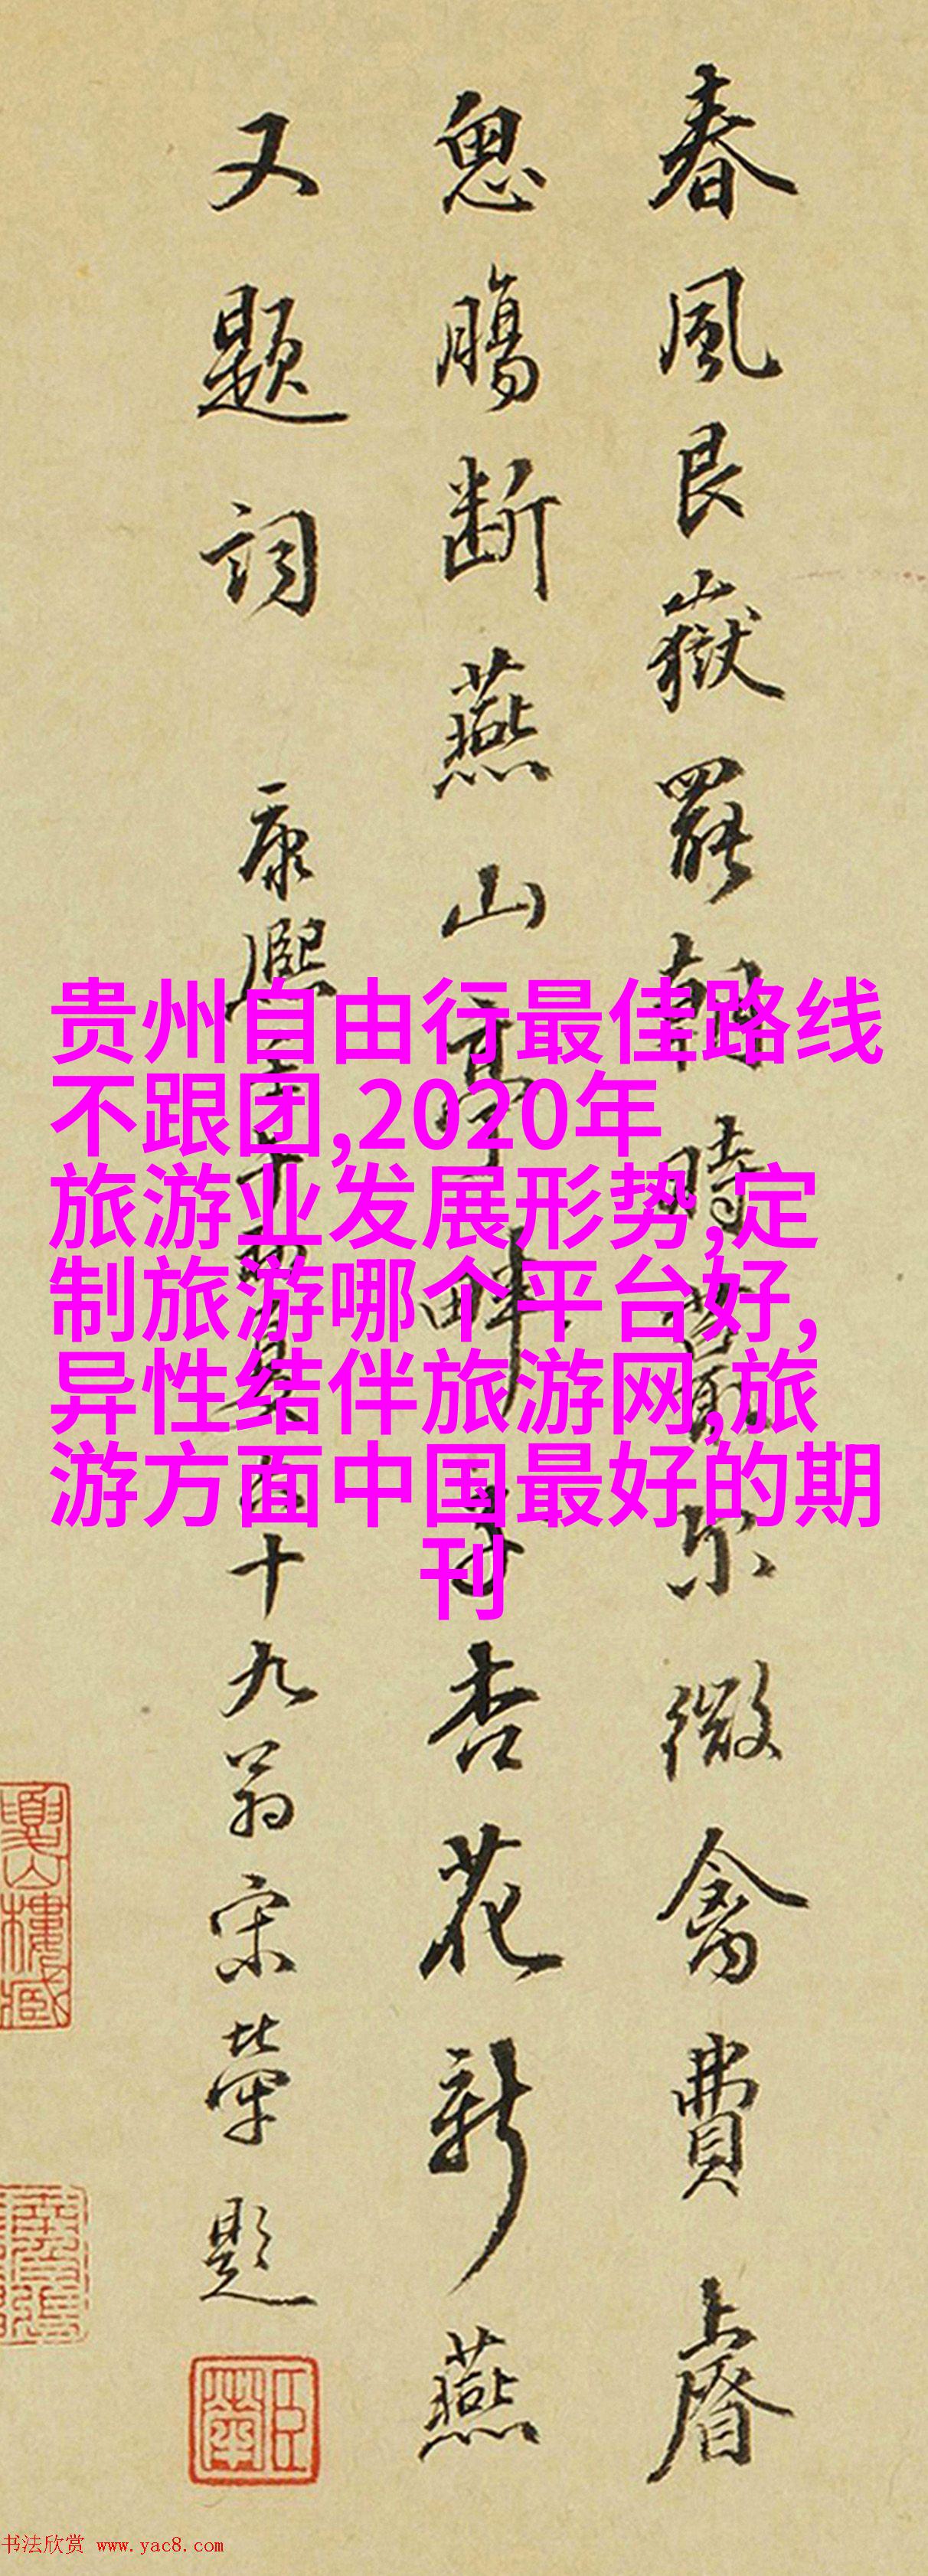 春風艮嶽罷朝時尔微禽費睿
思腸斷燕山亭畔杏花新燕
又題詞 康熙十九翁宋犖題
贵州自由行最佳路线
不跟团,2020年
旅游业发展形势,定
制旅游哪个平台好,
异性结伴旅游网,旅
游方面中国最好的期
刊
臣犖
书法欣赏 www.yac8.com